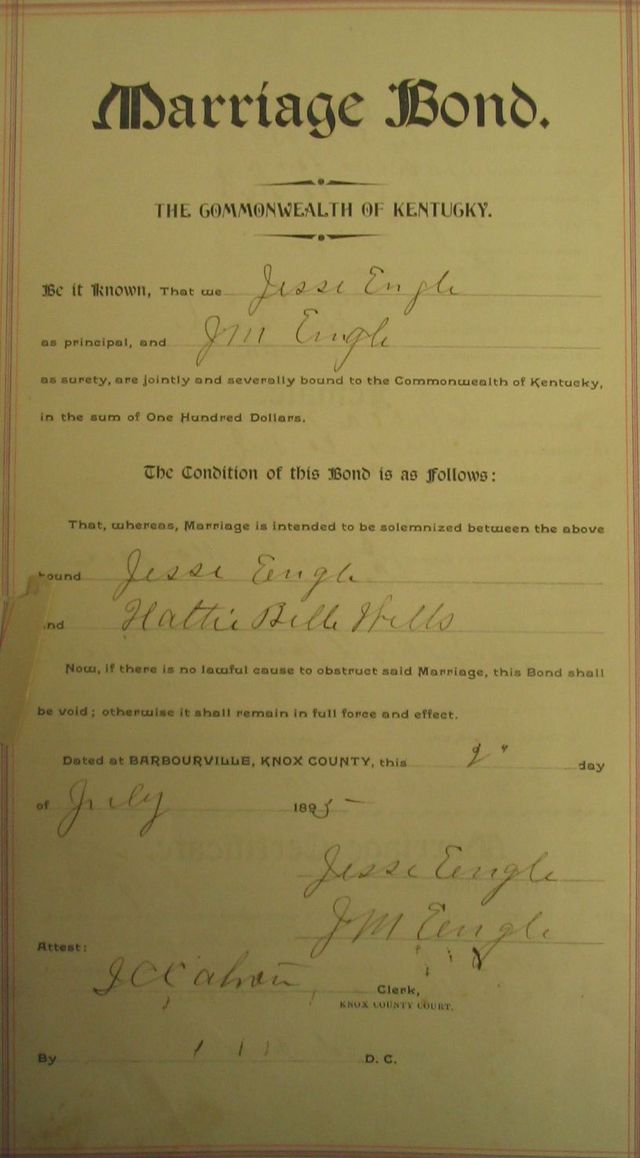 Marriage Bond.
THE COMMONWEALTH OF KENTUCKY.
Be it Known, That we Jesse Engle
as principal, and JM Engle
as surety, are jointly and severally bound to the Commonwealth of Kentucky,
in the sum of One Hundred Dollars.
The Condition of this Bond is as Follows:
That, whereas, Marriage is intended to be solemnized between the above
bound Jesse Engle
and Hattie Belle Wells
Now, if there is no lawful cause to obstruct said Marriage, this Bond shall
be void; otherwise it shall remain in full force and effect.
Dated at BARBOURVILLE, KNOX COUNTY, this day
of July 1895
Jesse Engle
JM Engle
Attest:
Clerk,
KNOX COUNTY COURT.
By D. C.